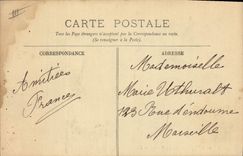 CARTE POSTALE
Tous les Pays étrangers n'acceptent pas la Correspondance au recto.
(Se renseigner à la Poste).
CORRESPONDANCE
ADRESSE
Amitiées
Frances
Mademoiselle
Marie
123 Rue d'endoume
Marseille